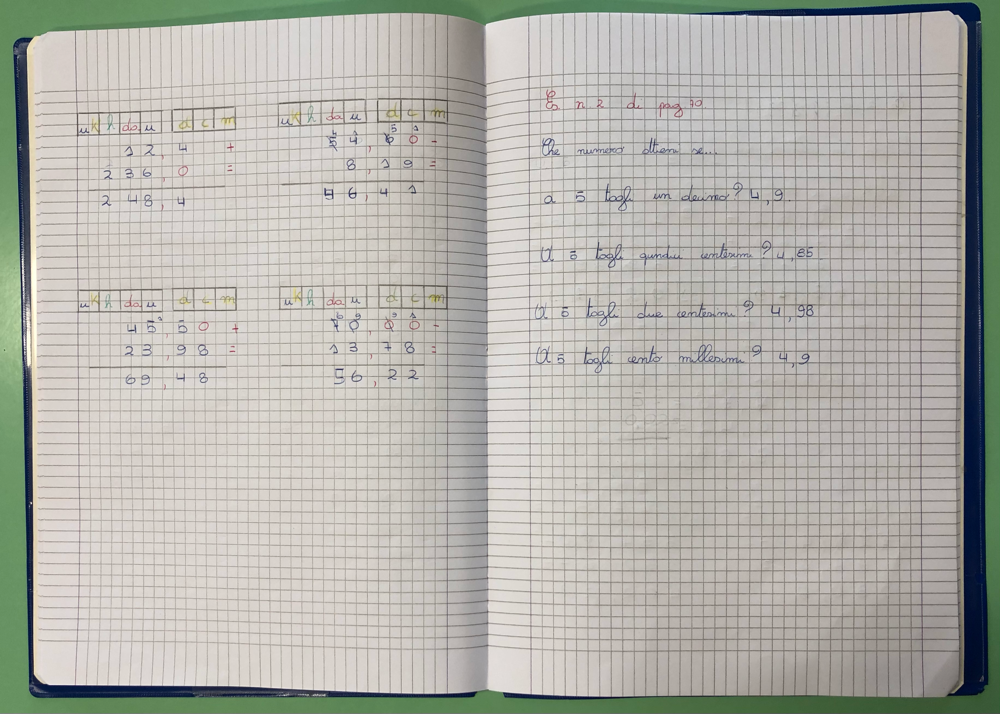 uK h da u d c m
1 2 , 4 +
2 3 6 , 0 =
2 4 8 , 4
uK h da u d c m
5 4 , 6 0 -
8 , 1 9 =
4 6 , 4 1
uK h da u d c m
4 5 , 5 0 +
2 3 , 9 8 =
6 9 , 4 8
uK h da u d c m
7 0 , 0 0 -
1 3 , 7 8 =
5 6 , 2 2
Es n 2 di pag 70
Che numero ottieni se...
a 5 togli un decimo? 4,9.
A 5 togli quindici centesimi? 4,85
A 5 togli due centesimi? 4,98
A 5 togli cento millesimi? 4,9